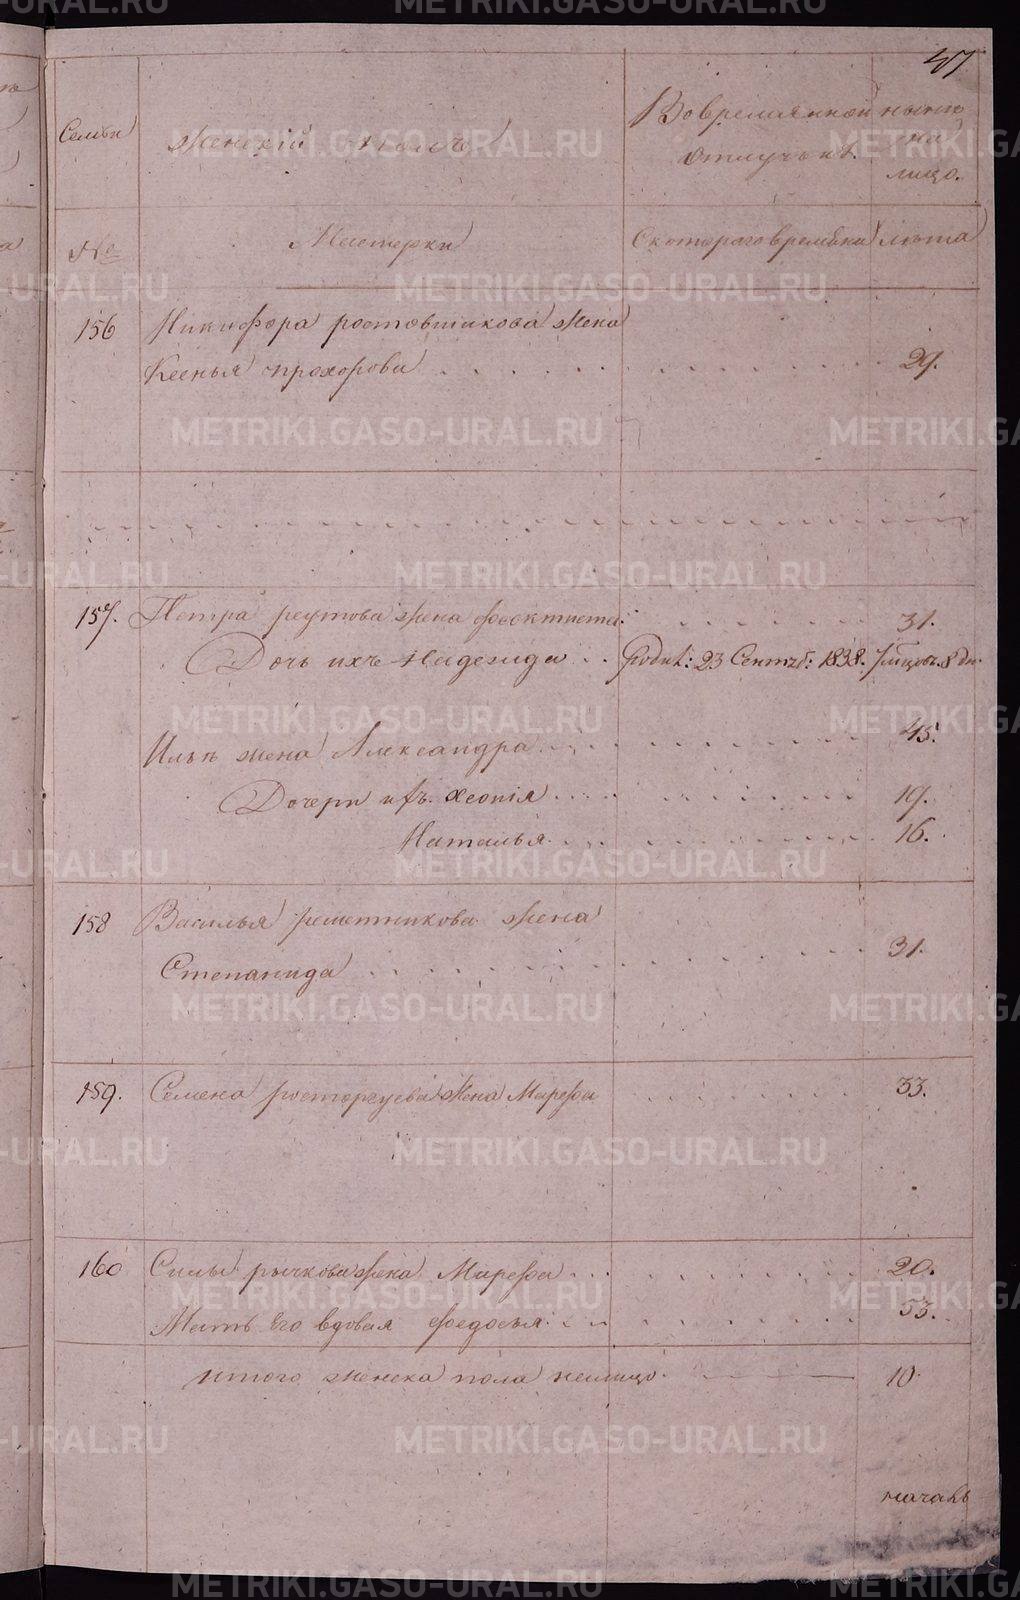 47
Семьи
Женский полъ
Во временной отлучке.
ныне на лицо.
№
Мастерки
С котораго времени
лета
156 Никифора ростовщикова жена
Ксенья прохорова 29.
157. Петра реутова жена феоктиста. 31.
Дочь ихъ Надежда Родит: 23 Сентяб: 1838. 7 мцовъ. 8 дн.
Ильи жена Александра 45.
Дочери ихъ. Хеонія 19.
Наталья 16.
158 Василья решетникова жена
Степанида 31.
159. Семена расторгуева жена Марефа 33.
160 Силы рычкова жена Марефа 20.
Мать Его вдовая федосья 53.
итого женска пола налицо. 10.
METRIKI.GASO-URAL.RU